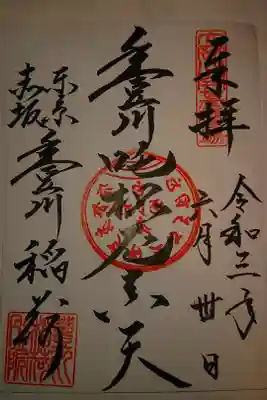 奉拝
令和三年
六月卅日
豊川吒枳尼真天
東京
赤坂
豊川稲荷